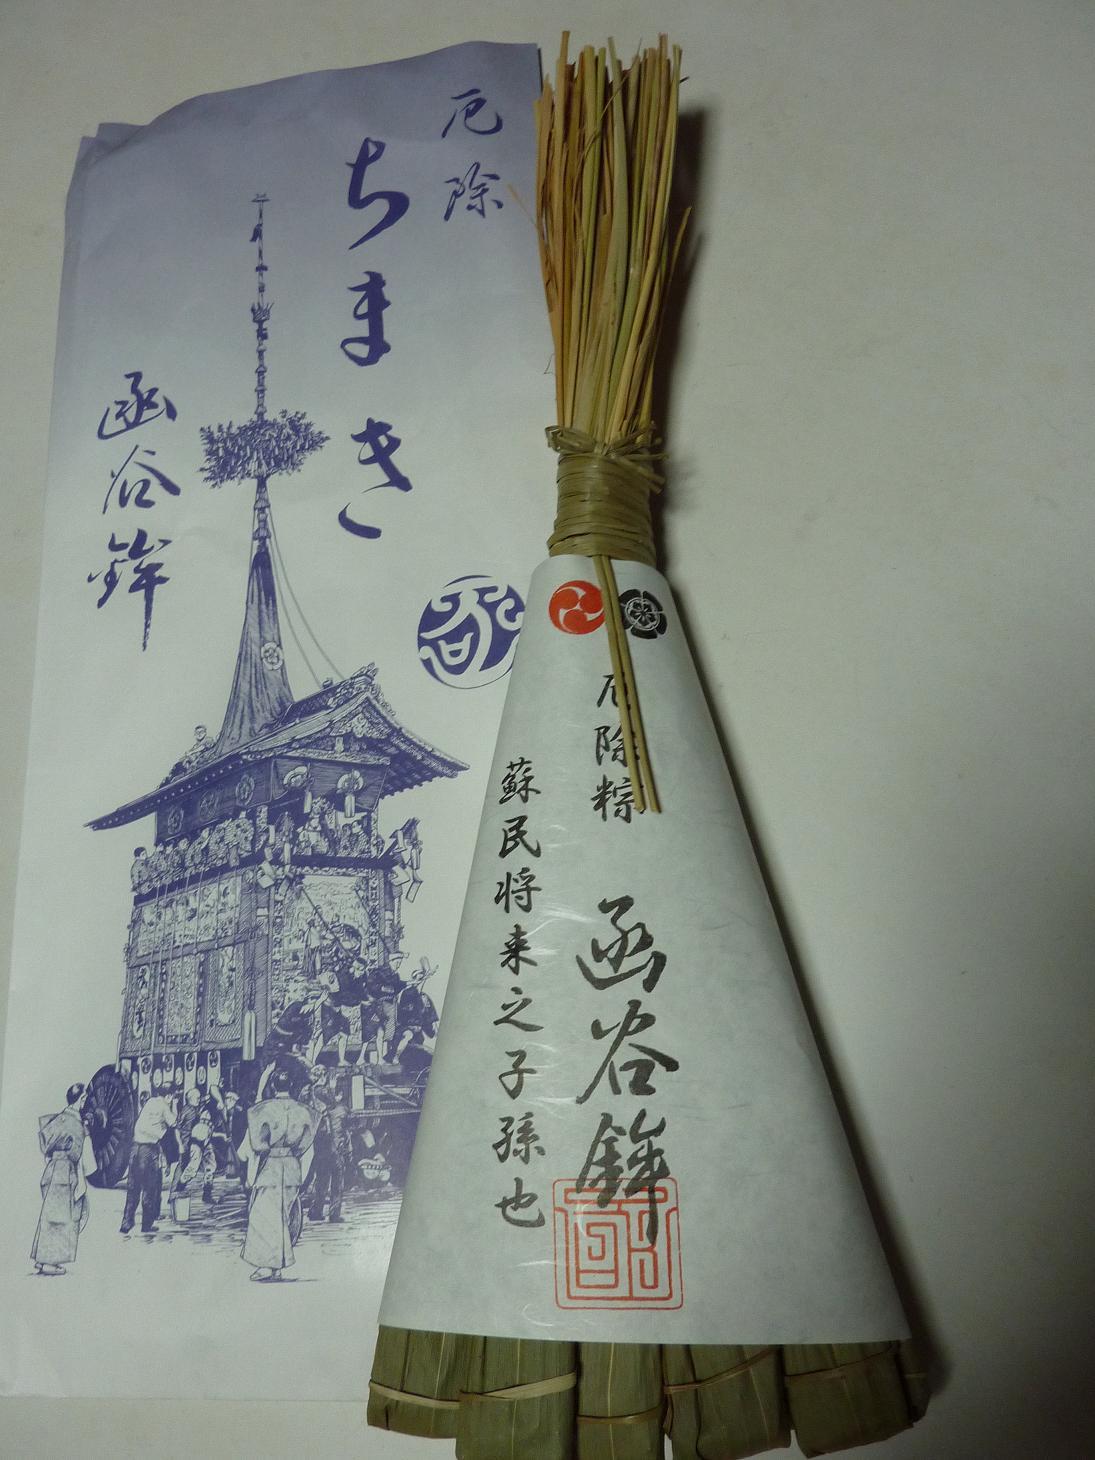 厄除
ちまき
函谷鉾
厄除粽
函谷鉾
蘇民将来之子孫也